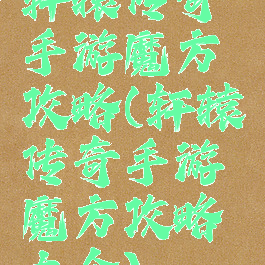 轩辕传奇
手游魔方
攻略(轩辕
传奇手游
魔方攻略
大全)